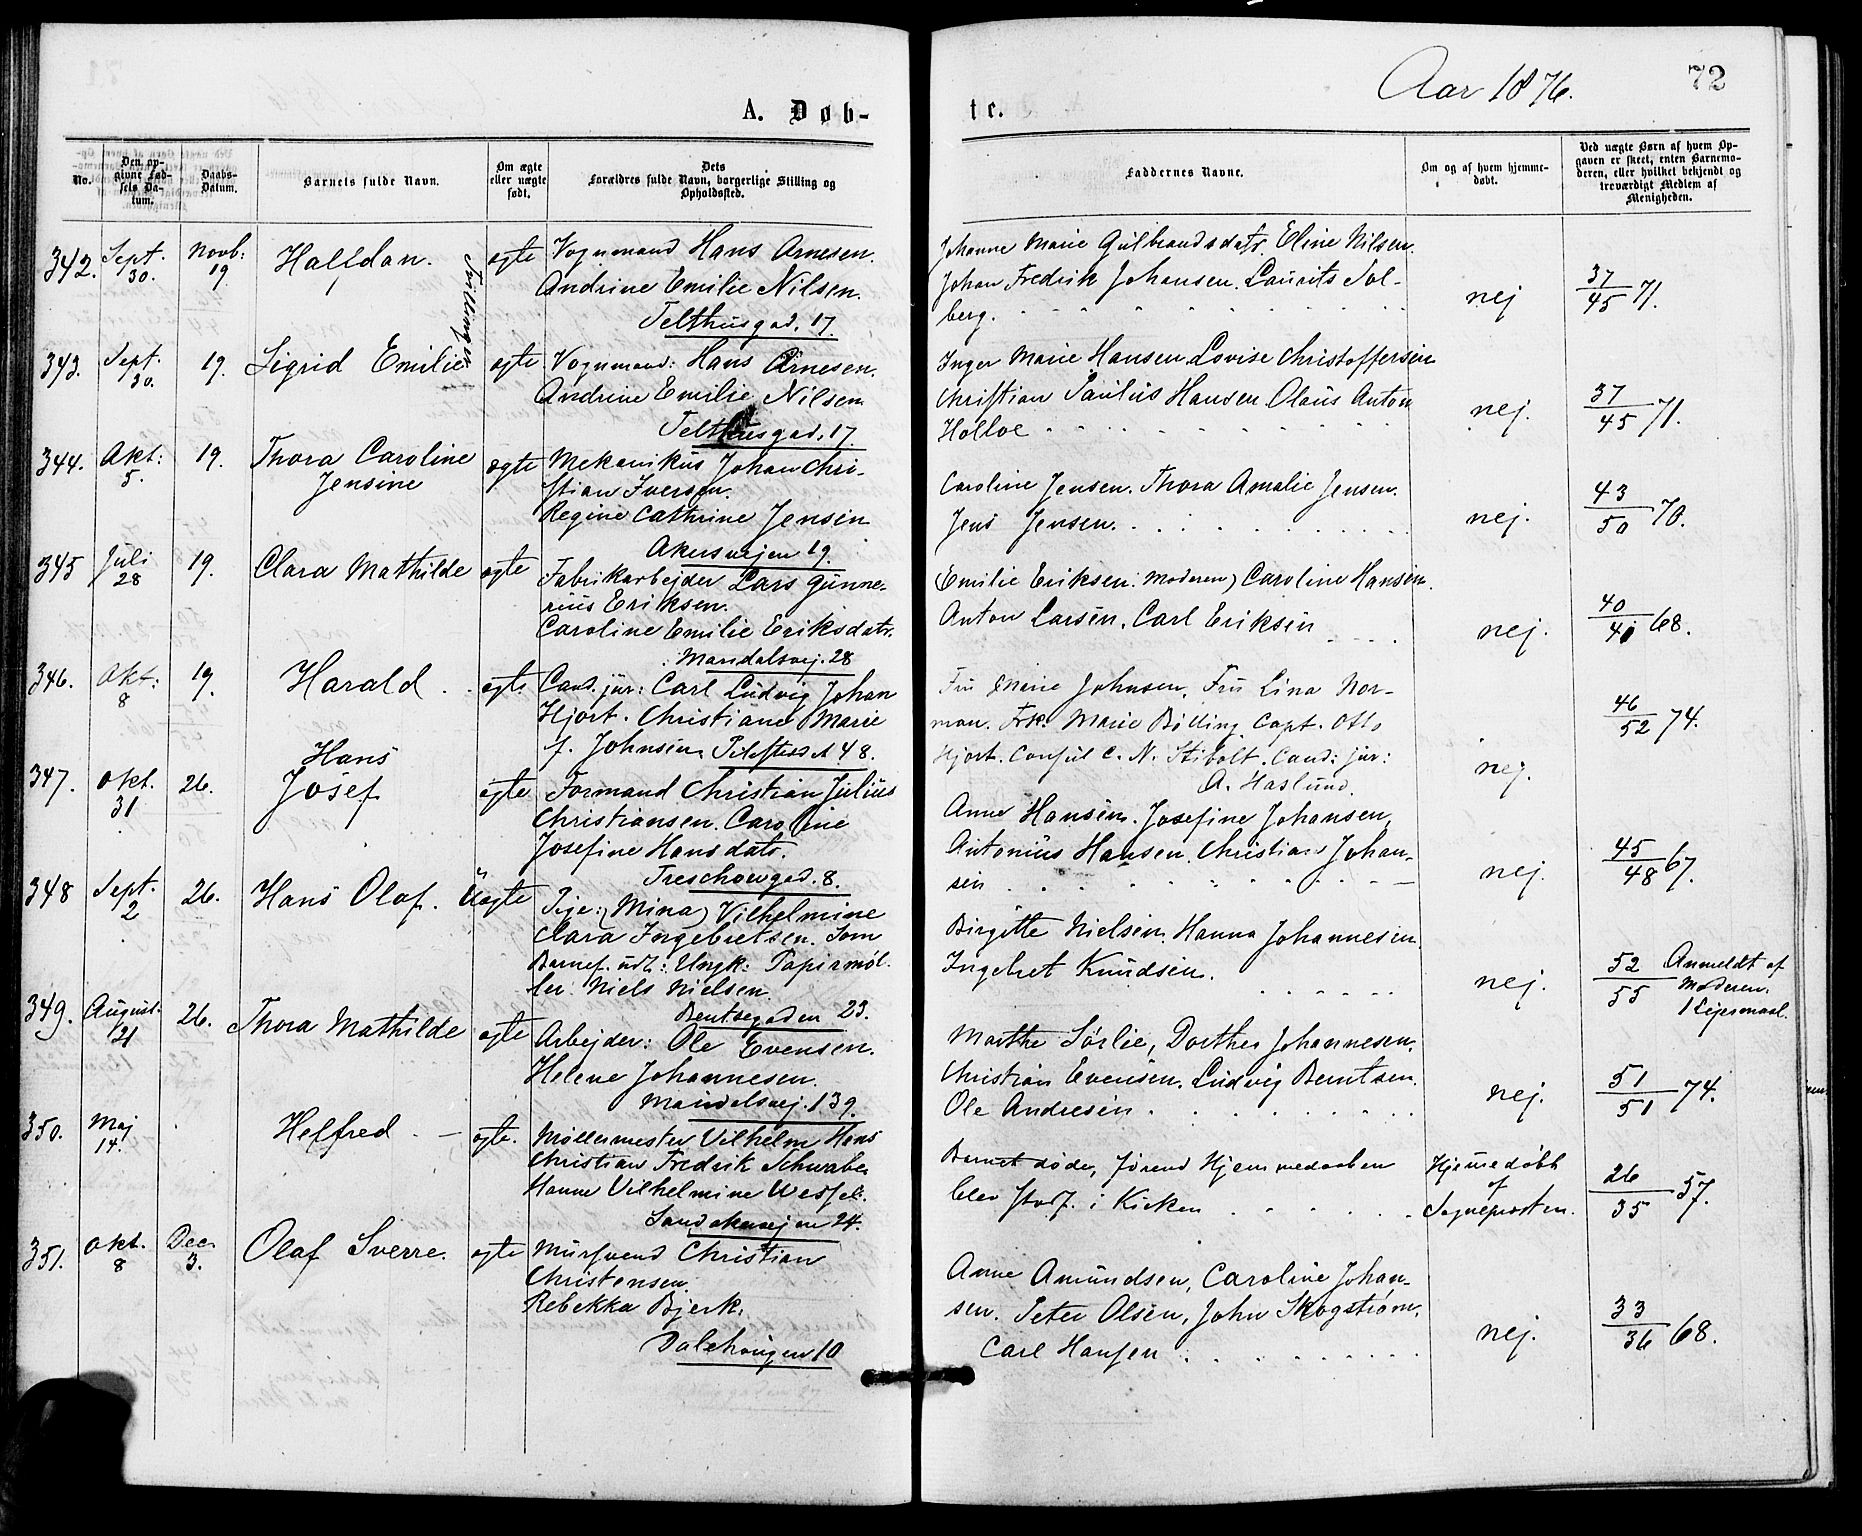 Aar 1876.
72
A. Døb-
te.
No.
Den op-
givne Fød-
sels Da-
tum.
Daabs-
Datum.
Barnets fulde Navn.
Om ægte
eller uægte
født.
Dets
Forældres fulde Navn, borgerlige Stilling og
Opholdssted.
Faddernes Navne.
Om og af hvem hjemme-
døbt.
Ved uægte Børn af hvem Op-
gaven er skeet, enten Barnemo-
deren, eller hvilket bekjendt og
troværdigt Medlem af
Menigheden.
342. Sept. 30. Novb: 19 Halfdan. Tvillinger
ægte
Vognmand Hans Arnesen.
Andrine Emilie Nilsen.
Telthusgad. 17.
Johanne Marie Gulbrandsdatr. Eline Nilsen.
Johan Fredrik Johansen. Laurits Sol-
berg.
nej
37/45 71.
343. Sept. 30. 19. Sigrid Emilie
ægte
Vognmand: Hans Arnesen.
Andrine Emilie Nilsen
Telthusgad. 17
Inger Marie Hansen Lovise Christoffersen
Christian Paulus Hansen Olaus Anton
Holloe
nej.
37/45 71.
344. Okt: 5. 19. Thora Caroline
Jensine
ægte
Mekanikus Johan Chri-
stian Iversen.
Regine Cathrine Jensen
Akersvejen 19.
Caroline Jensen. Thora Amalie Jensen.
Jens Jensen.
nej.
43/50 70.
345 Juli 28 19. Clara Mathilde
ægte
Fabrikarbejder Lars Gunne-
rius Eriksen.
Caroline Emilie Eriksdatr.
Maridalsvej. 28
Emilie Eriksen: Moderen) Caroline Hansen.
Anton Larsen. Carl Eriksen
nej.
40/41 68.
346. Okt: 8 19. Harald
ægte
Cand. jur: Carl Ludvig Johan
Hjort. Christiane Marie
f. Johnsen. Pilestrædet 48.
Fru Marie Johnsen. Fru Lina Nor-
man. Frk. Marie Bølling Capt. Otto
Hjort. Consul C. N. Stibolt. Cand: jur:
A. Haslund.
nej.
46/52 74.
347. Okt. 31 26. Hans
Josef
ægte
Formand Christian Julius
Christiansen. Caroline
Josefine Hansdatr.
Treschowgad. 8.
Anne Hansen. Josefine Johansen,
Antonius Hansen. Christian Johan-
sen
nej.
45/48 67.
348 Sept. 2 26. Hans Olaf.
Uægte
Pige: Mina) Vilhelmine
Clara Ingebretsen. Som
Barnef. udl: Ungk: Papirmøl-
ler Niels Nielsen.
Bentsegaden 23.
Birgitte Nielsen. Hanna Johannesen
Ingebret Knudsen.
nej.
52/55 Anmeldt af
Moderen.
1 Lejermaal.
349. August. 21 26. Thora Mathilde
ægte
Arbejder: Ole Evensen.
Helene Johannesen.
Maridalsvej. 139.
Marthe Sørlie, Dorthea Johannesen.
Christian Evensen. Ludvig Berntsen.
Ole Andresen
nej.
51/51 74.
350. Maj 14. Helfred
ægte.
Møllermester Vilhelm Hans
Christian Fredrik Schwabe
Hanne Vilhelmine Wessel.
Sandakervejen 24.
Barnet døde, førend Hjemmedaaben
blev stadf. i Kirken
Hjemmedøbt
af
Sognepresten.
26/35 57.
351. Okt. 8 Dec. 3. Olaf Sverre.
ægte
Mursvend Christian
Christensen.
Rebekka Bjerk.
Dalehaugen 10
Anne Amundsen, Caroline Johan-
sen. Peter Olsen, John Skogstrøm,
Carl Hansen
nej.
33/36 68.